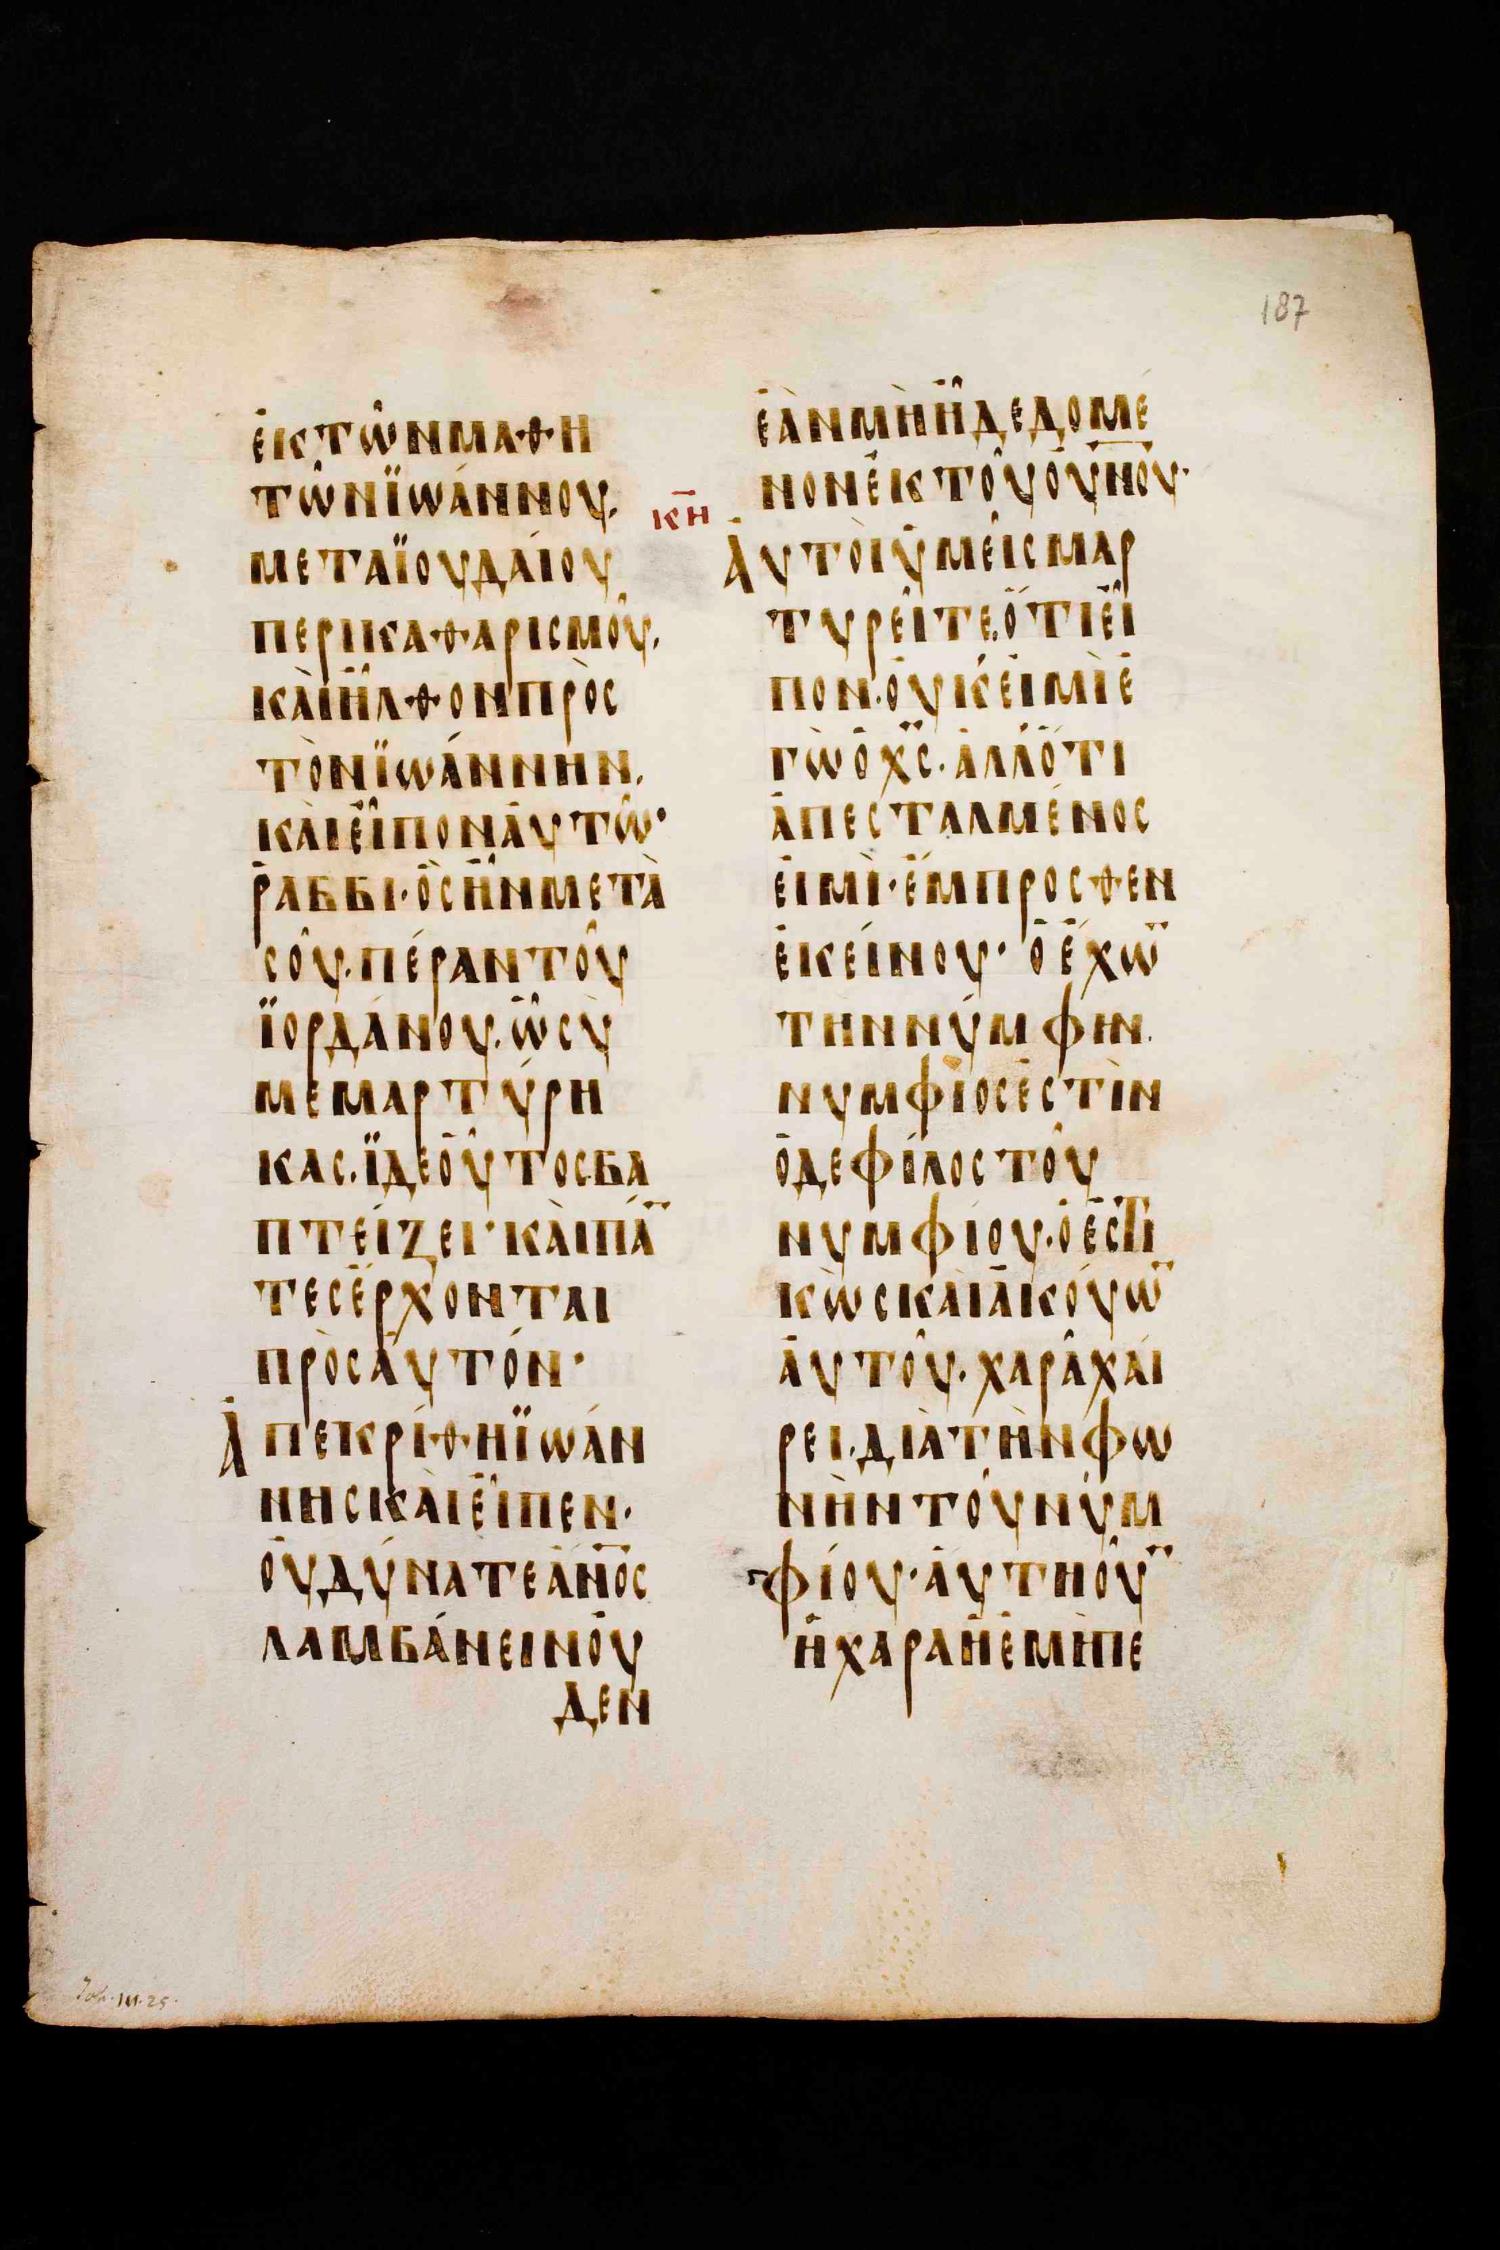 187
ἐκτῶνμαθη
τῶνϊωάννου,
μεταϊουδαίου
περικαθαρισμοῦ,
κὰιἦλθονπρὸς
τὸνϊωάννην,
κὰιἐῖπονἀυτῶ·
ῥαββι·ὃςἦνμετὰ
σοῦ·πέραντοῦ
ϊορδάνου,ὧσὺ
μεμαρτύρη
κας,ϊδεοὗτοςβα
πτείζει·κὰιπά̅
τεςἔρχονται
πρὸςἀυτόν·
ἀπεκρίθηϊωάν
νηςκὰιἐῖπεν·
ὀυδύνατεἀν̅ο̅ς̅
λαμβάνεινὀυ
δεν
ἐὰνμὴἦδεδομέ
νονἐκτοῦὀυν̅ο̅υ̅·
κ̅η̅
ἀυτὸιὑμεῖςμαρ
τυρεῖτε,ὅτιἐῖ
πον·ὀυκἐιμὶἐ
γὼὁχ̅ς̅·ἀλλὅτι
ἀπεσταλμένος
ἐιμὶ·ἔμπροσθεν
ἐκείνου· ὁἔχω̅
τὴννύμφην.
νυμφίοςἐςτὶν
ὁδεφίλοςτοῦ
νυμφίου·ὁἐςτι
κὼςκαὶἀκούω̅
ἀυτοῦ·χαρᾶχάι
ρει·διὰτὴνφω
νὴντοῦνυμ
φίου·ἀυτηοῦ̅
ἡχαραἡἐμὴπε
Joh. III. 25.